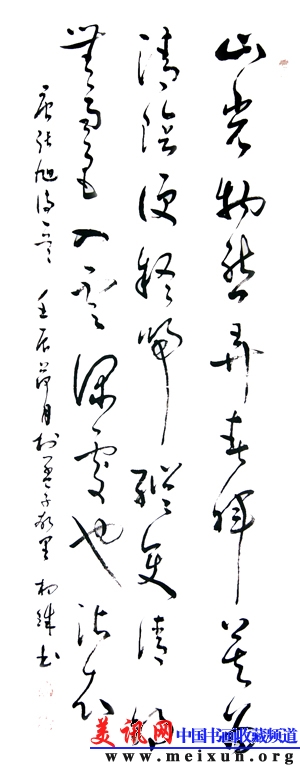 山光物態弄春暉莫為
清陰便擬歸縱使清明
無雨色入雲深處也沾衣
唐張旭詩一首 壬辰荷月於孟子故里 書
美讯网 中国书画收藏频道
www.meixun.org